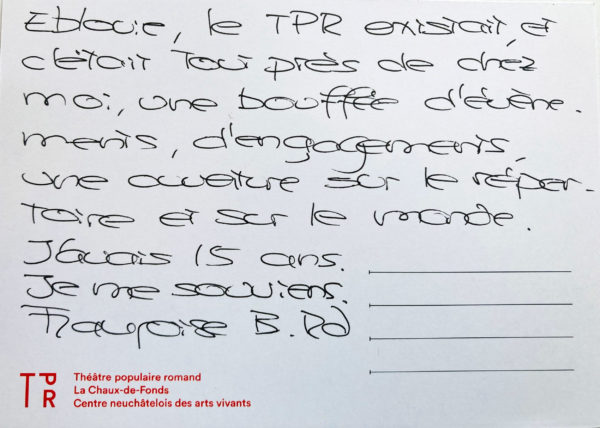 Eblouie, le TPR existait, et
c'était tout près de chez
moi, une bouffée d'évène-
ments, d'engagements,
une ouverture sur le réper-
toire et sur le monde.
J'avais 15 ans.
Je me souviens.
Françoise B.
TPR
Théâtre populaire romand
La Chaux-de-Fonds
Centre neuchâtelois des arts vivants